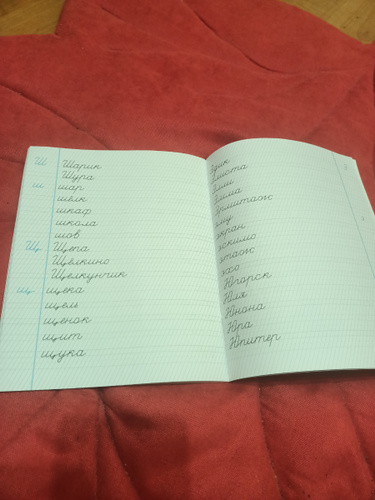 Ш Шарик
Шура
ш шар
шёлк
шкаф
школа
шов
Щ Щепа
Щёлкино
Щелкунчик
щ щека
щель
щенок
щит
щука
Эдик
Элиста
Элли
Эмма
Эрмитаж
эму
экран
эскимо
этаж
эхо
Югорск
Юля
Юнона
Юра
Юпитер